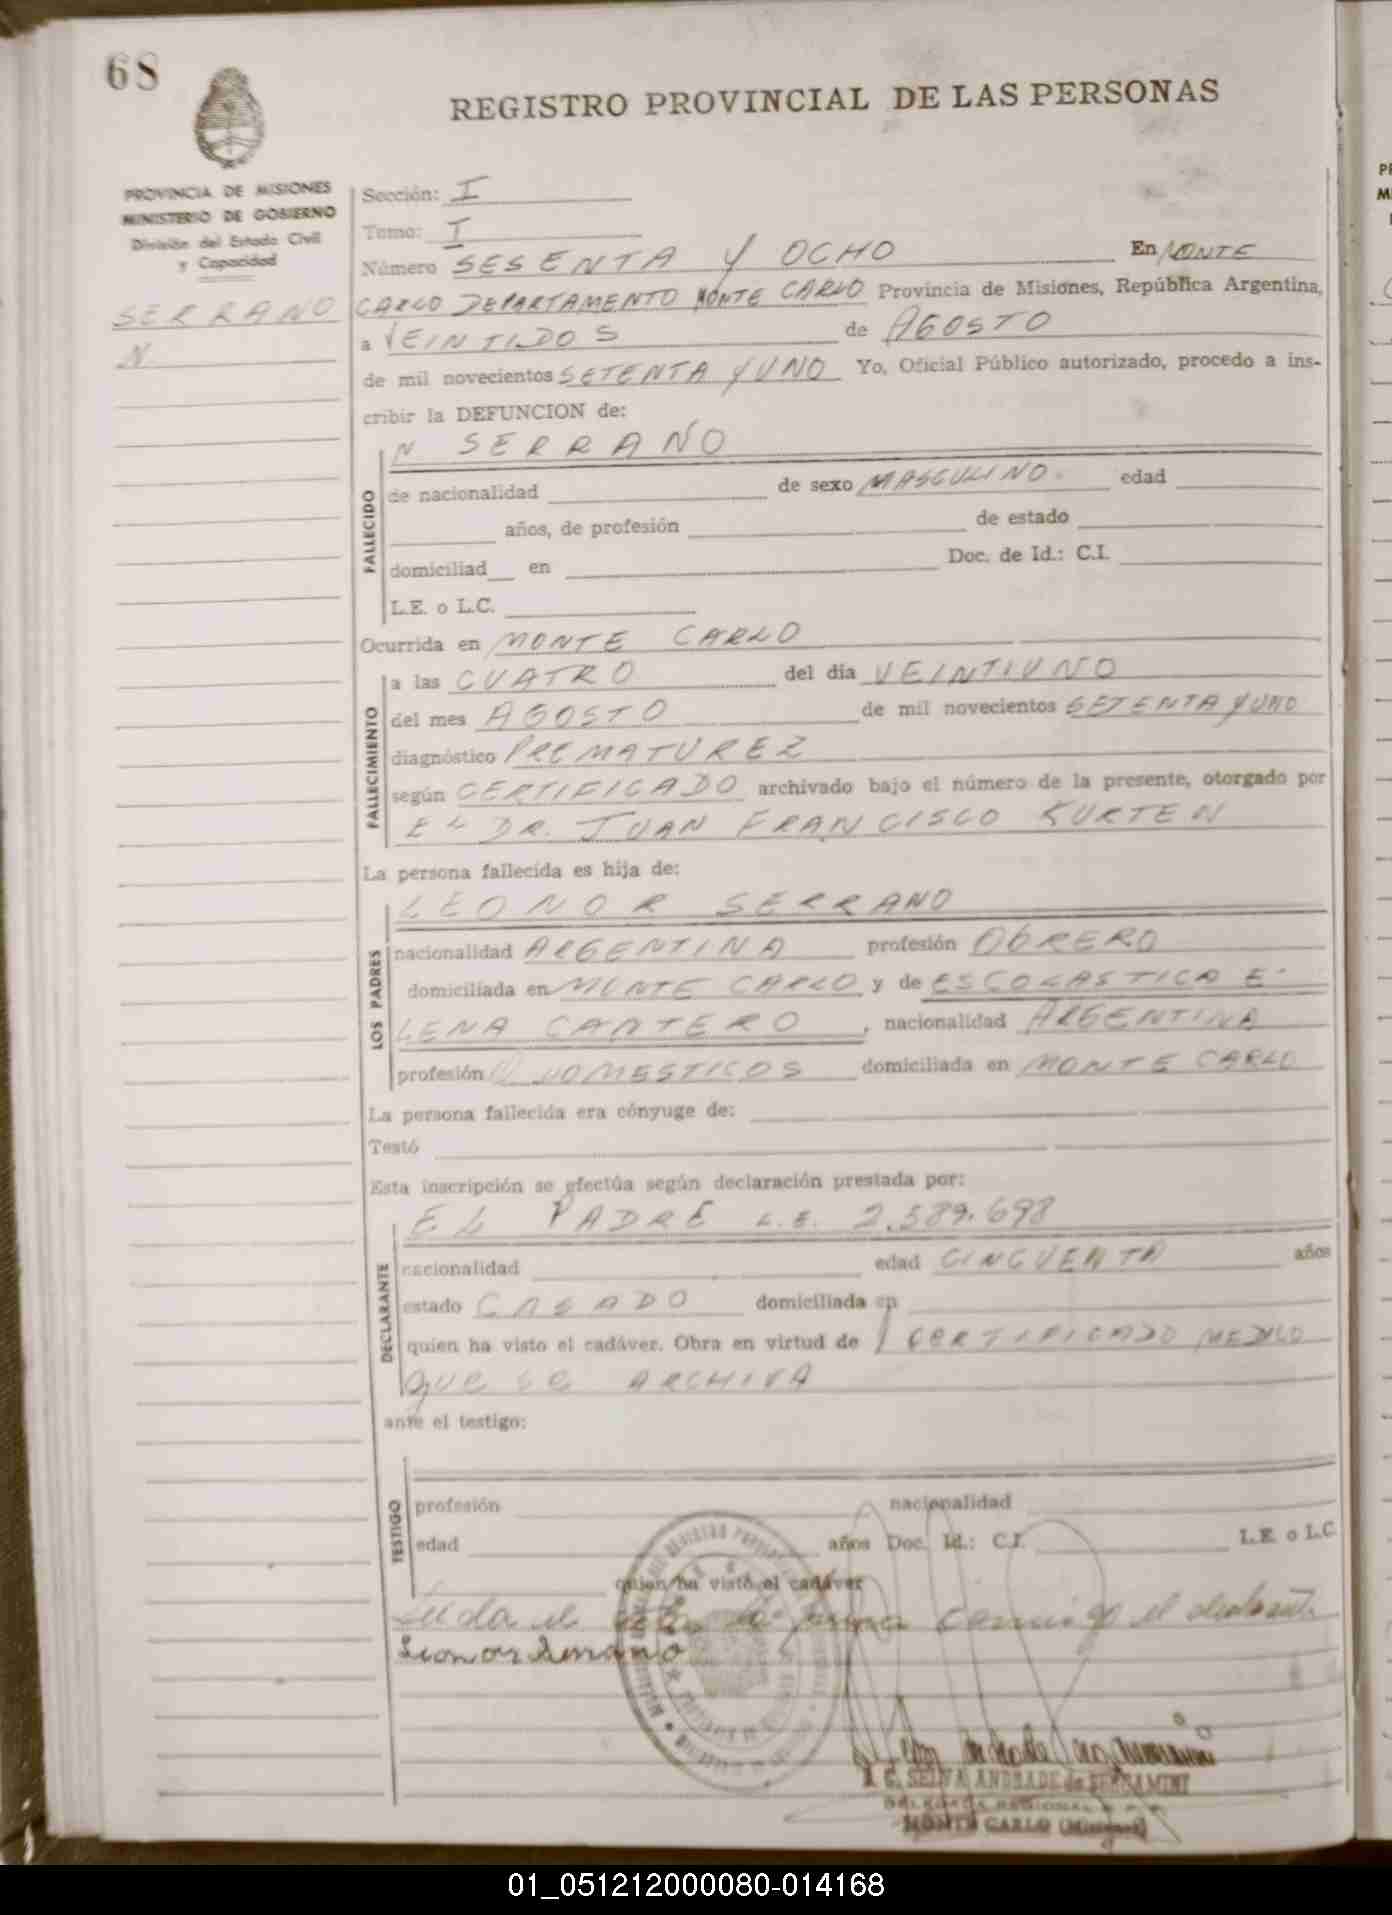 68
REGISTRO PROVINCIAL DE LAS PERSONAS
PROVINCIA DE MISIONES
MINISTERIO DE GOBIERNO
División del Estado Civil
y Capacidad
SERRANO
N
Sección: I
Tomo: I
Número SESENTA Y OCHO En MONTE
CARLO DEPARTAMENTO MONTE CARLO Provincia de Misiones, República Argentina,
a VEINTIDOS de AGOSTO
de mil novecientos SETENTA Y UNO Yo, Oficial Público autorizado, procedo a ins-
cribir la DEFUNCION de:
N SERRANO
FALLECIDO
de nacionalidad de sexo MASCULINO. edad
años, de profesión de estado
domiciliad en Doc. de Id.: C.I.
L.E. o L.C.
Ocurrida en MONTE CARLO
FALLECIMIENTO
a las CUATRO del día VEINTIUNO
del mes AGOSTO de mil novecientos SETENTA Y UNO
diagnóstico PREMATUREZ
según CERTIFICADO archivado bajo el número de la presente, otorgado por
EL DR. JUAN FRANCISCO KURTEN
La persona fallecida es hija de:
LEONOR SERRANO
LOS PADRES
nacionalidad ARGENTINA profesión OBRERO
domiciliada en MONTE CARLO y de ESCOLASTICA E
LENA CANTERO, nacionalidad ARGENTINA
profesión Q DOMESTICOS domiciliada en MONTE CARLO
La persona fallecida era cónyuge de:
Testó
Esta inscripción se efectúa según declaración prestada por:
EL PADRE L.E. 2.589.698
DECLARANTE
nacionalidad edad CINCUENTA años
estado CASADO domiciliada en
quien ha visto el cadáver. Obra en virtud de CERTIFICADO MEDICO
QUE SE ARCHIVA
ante el testigo:
TESTIGO
profesión nacionalidad
edad años Doc. Id.: C.I. L.E. o L.C.
quien ha visto el cadáver
Leída el acta la firma conmigo el declarante
Leonor Serrano
A. C. SELVA ANDRADE de BERGAMINI
DELEGADA REGIONAL
MONTE CARLO (Misiones)
01_051212000080-014168